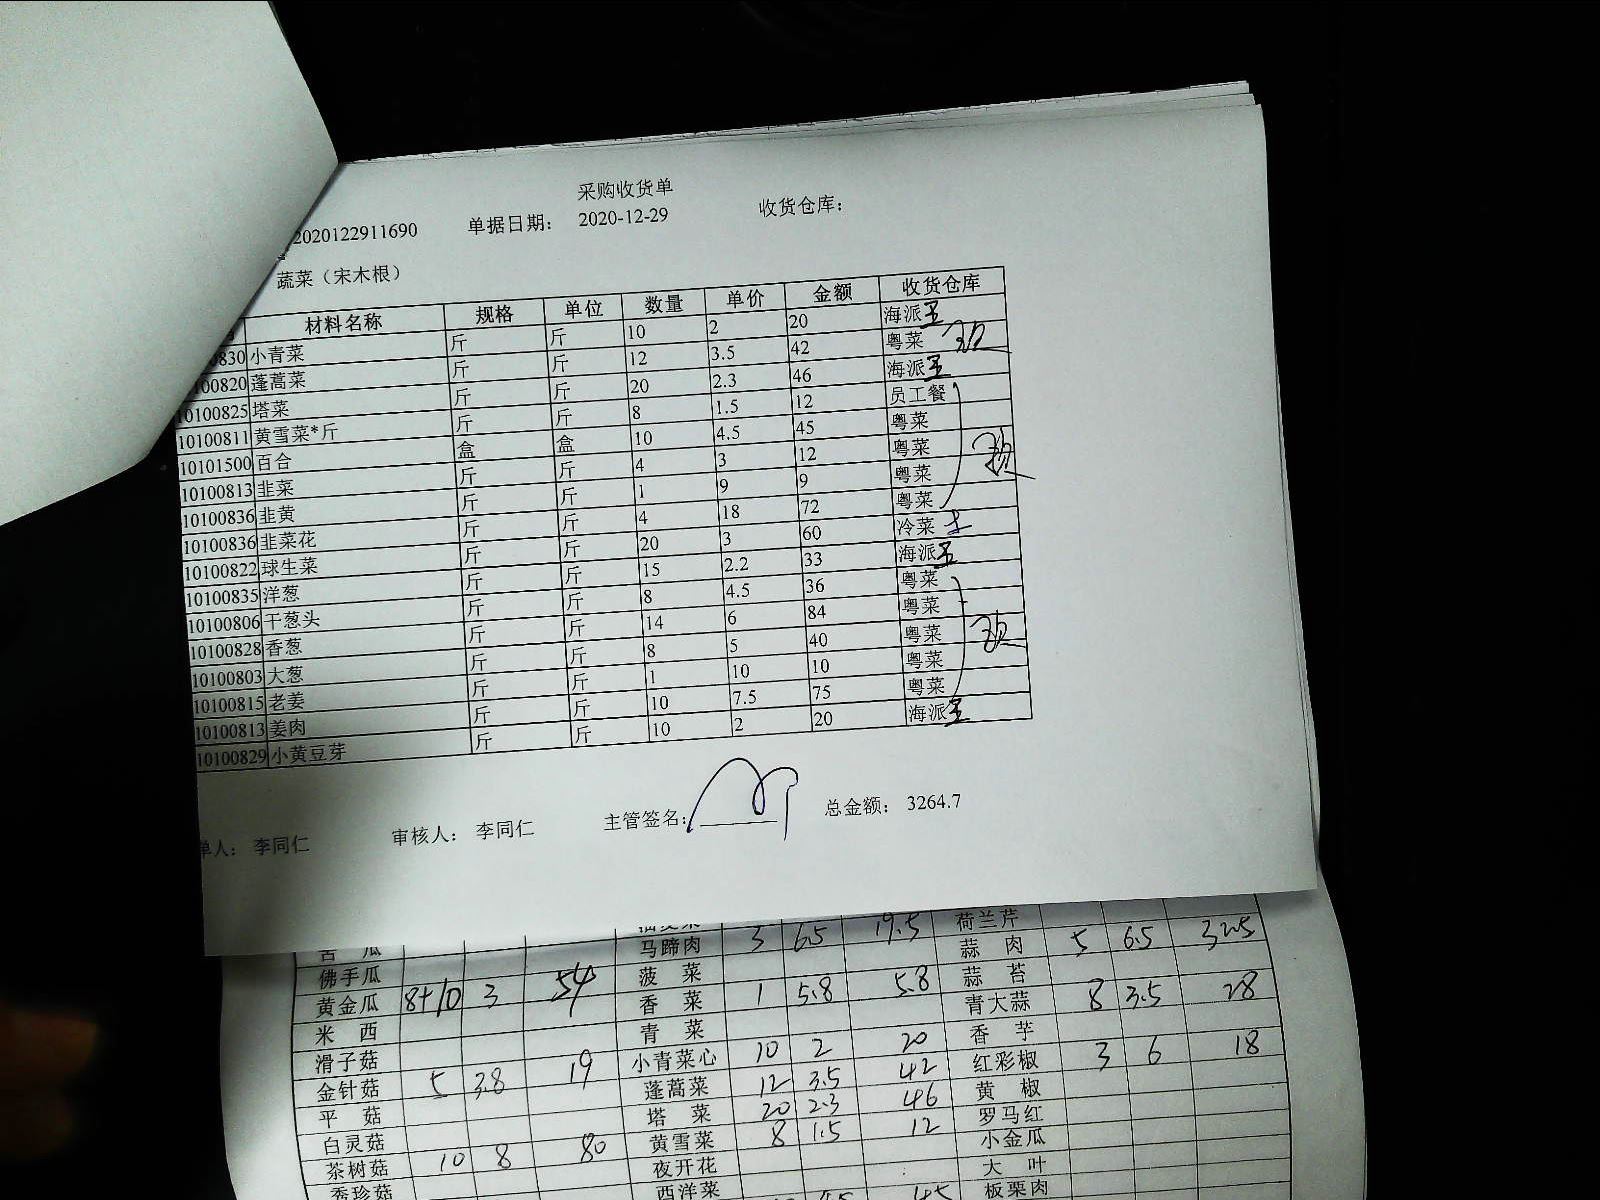 采购收货单
2020122911690 单据日期： 2020-12-29 收货仓库：
蔬菜（宋木根）
材料名称 规格 单位 数量 单价 金额 收货仓库
0830 小青菜 斤 斤 10 2 20 海派
100820 蓬蒿菜 斤 斤 12 3.5 42 粤菜
10100825 塔菜 斤 斤 20 2.3 46 海派
10100811 黄雪菜*斤 斤 斤 8 1.5 12 员工餐
10101500 百合 盒 盒 10 4.5 45 粤菜
10100813 韭菜 斤 斤 4 3 12 粤菜
10100836 韭黄 斤 斤 1 9 9 粤菜
10100836 韭菜花 斤 斤 4 18 72 粤菜
10100822 球生菜 斤 斤 20 3 60 冷菜
10100835 洋葱 斤 斤 15 2.2 33 海派
10100806 干葱头 斤 斤 8 4.5 36 粤菜
10100828 香葱 斤 斤 14 6 84 粤菜
10100803 大葱 斤 斤 8 5 40 粤菜
10100815 老姜 斤 斤 1 10 10 粤菜
10100813 姜肉 斤 斤 10 7.5 75 粤菜
10100829 小黄豆芽 斤 斤 10 2 20 海派
单人： 李同仁 审核人： 李同仁 主管签名： 总金额： 3264.7
荷兰芹
苦瓜 马蹄肉 3 6.5 19.5 蒜肉 5 6.5 32.5
佛手瓜 菠菜 蒜苔
黄金瓜 8+10 3 54 香菜 1 5.8 5.8 青大蒜 8 3.5 28
米西 青菜 香芋
滑子菇 小青菜心 10 2 20 红彩椒 3 6 18
金针菇 5 3.8 19 蓬蒿菜 12 3.5 42 黄椒
平菇 塔菜 20 2.3 46 罗马红
白灵菇 黄雪菜 8 1.5 12 小金瓜
茶树菇 10 8 80 夜开花 大叶
秀珍菇 西洋菜 板栗肉